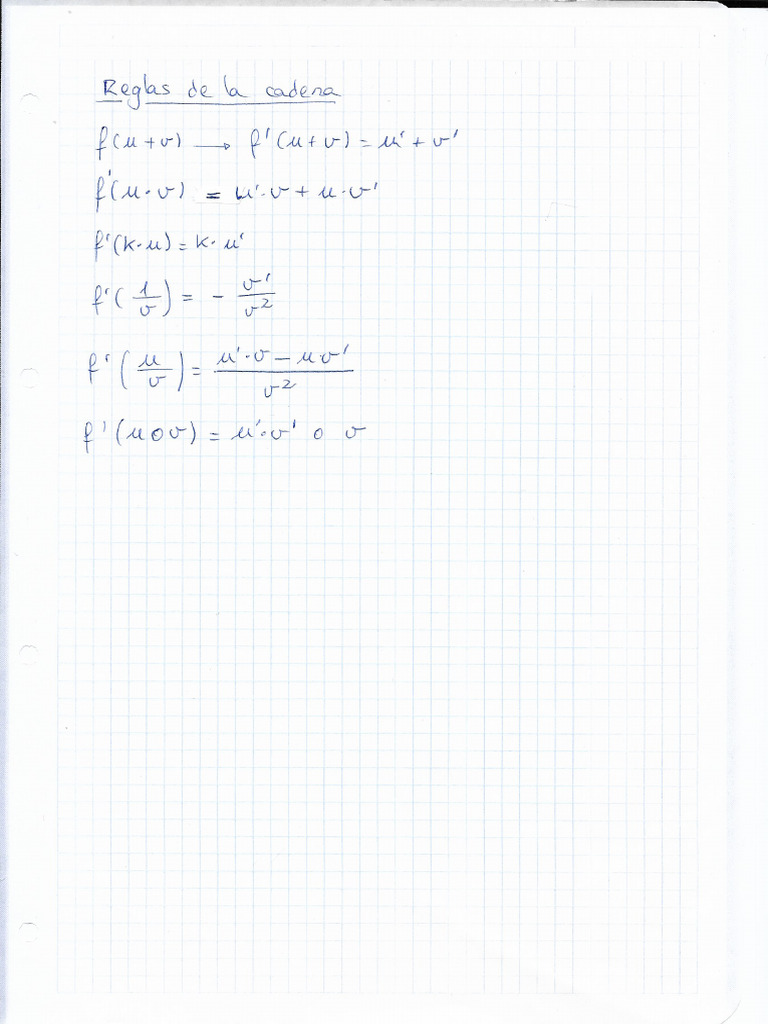 Reglas de la cadena
f(u+v) → f'(u+v) = u' + v'
f'(u·v) = u'·v + u·v'
f'(k·u) = k·u'
f'(1/v) = - v'/v²
f'(u/v) = (u'·v - uv')/v²
f'(u o v) = u'·v' o v